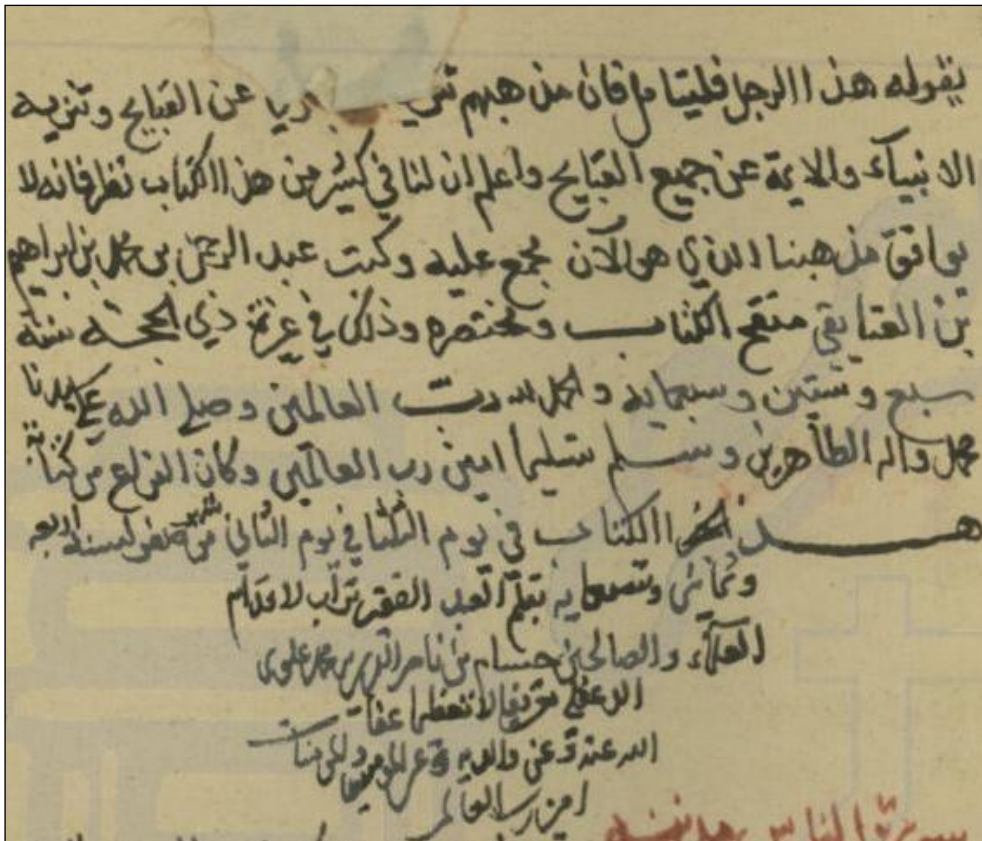 يقوله هذا الرجل فليتامل فان مذهبهم عن القبايح وتنزيه
الانبيآء والايمة عن جميع القبايح واعلم ان لنا في كثير من هذا الكتاب نظر فانه لا
يوافق مذهبنا الذي هو الآن مجمع عليه وكتب عبد الرحمن بن محمد بن ابراهيم
بن العتايقي منقح الكتاب ومختصره وذلك في غرة ذي الحجة سنة
سبع وستين وسبعماية والحمد لله رب العالمين وصلى الله على سيدنا
محمد واله الطاهرين وسلم تسليما امين رب العالمين وكان الفراغ من كتابة
هذا الكتاب في يوم الثلثا في يوم الثاني من شهر صفر لسنة اربعة
وثمانين وتسعماية بقلم العبد الفقير تراب لاقدام
العلمآء والصالحين حسام بن ناصر الدين بن محمد
عفا
الله عنه وعن والديه وعن المومنين والمومنات
امين رب العالمين
الناس